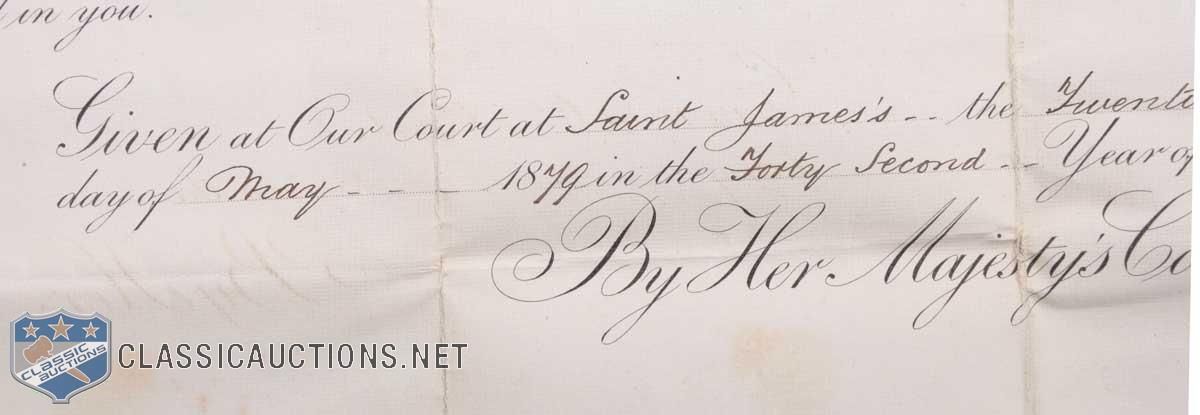 in you.
Given at Our Court at Saint James's -- the Twenti
day of May - - - 1879 in the Forty Second -- Year of
By Her Majesty's Co
CLASSIC AUCTIONS
CLASSICAUCTIONS.NET